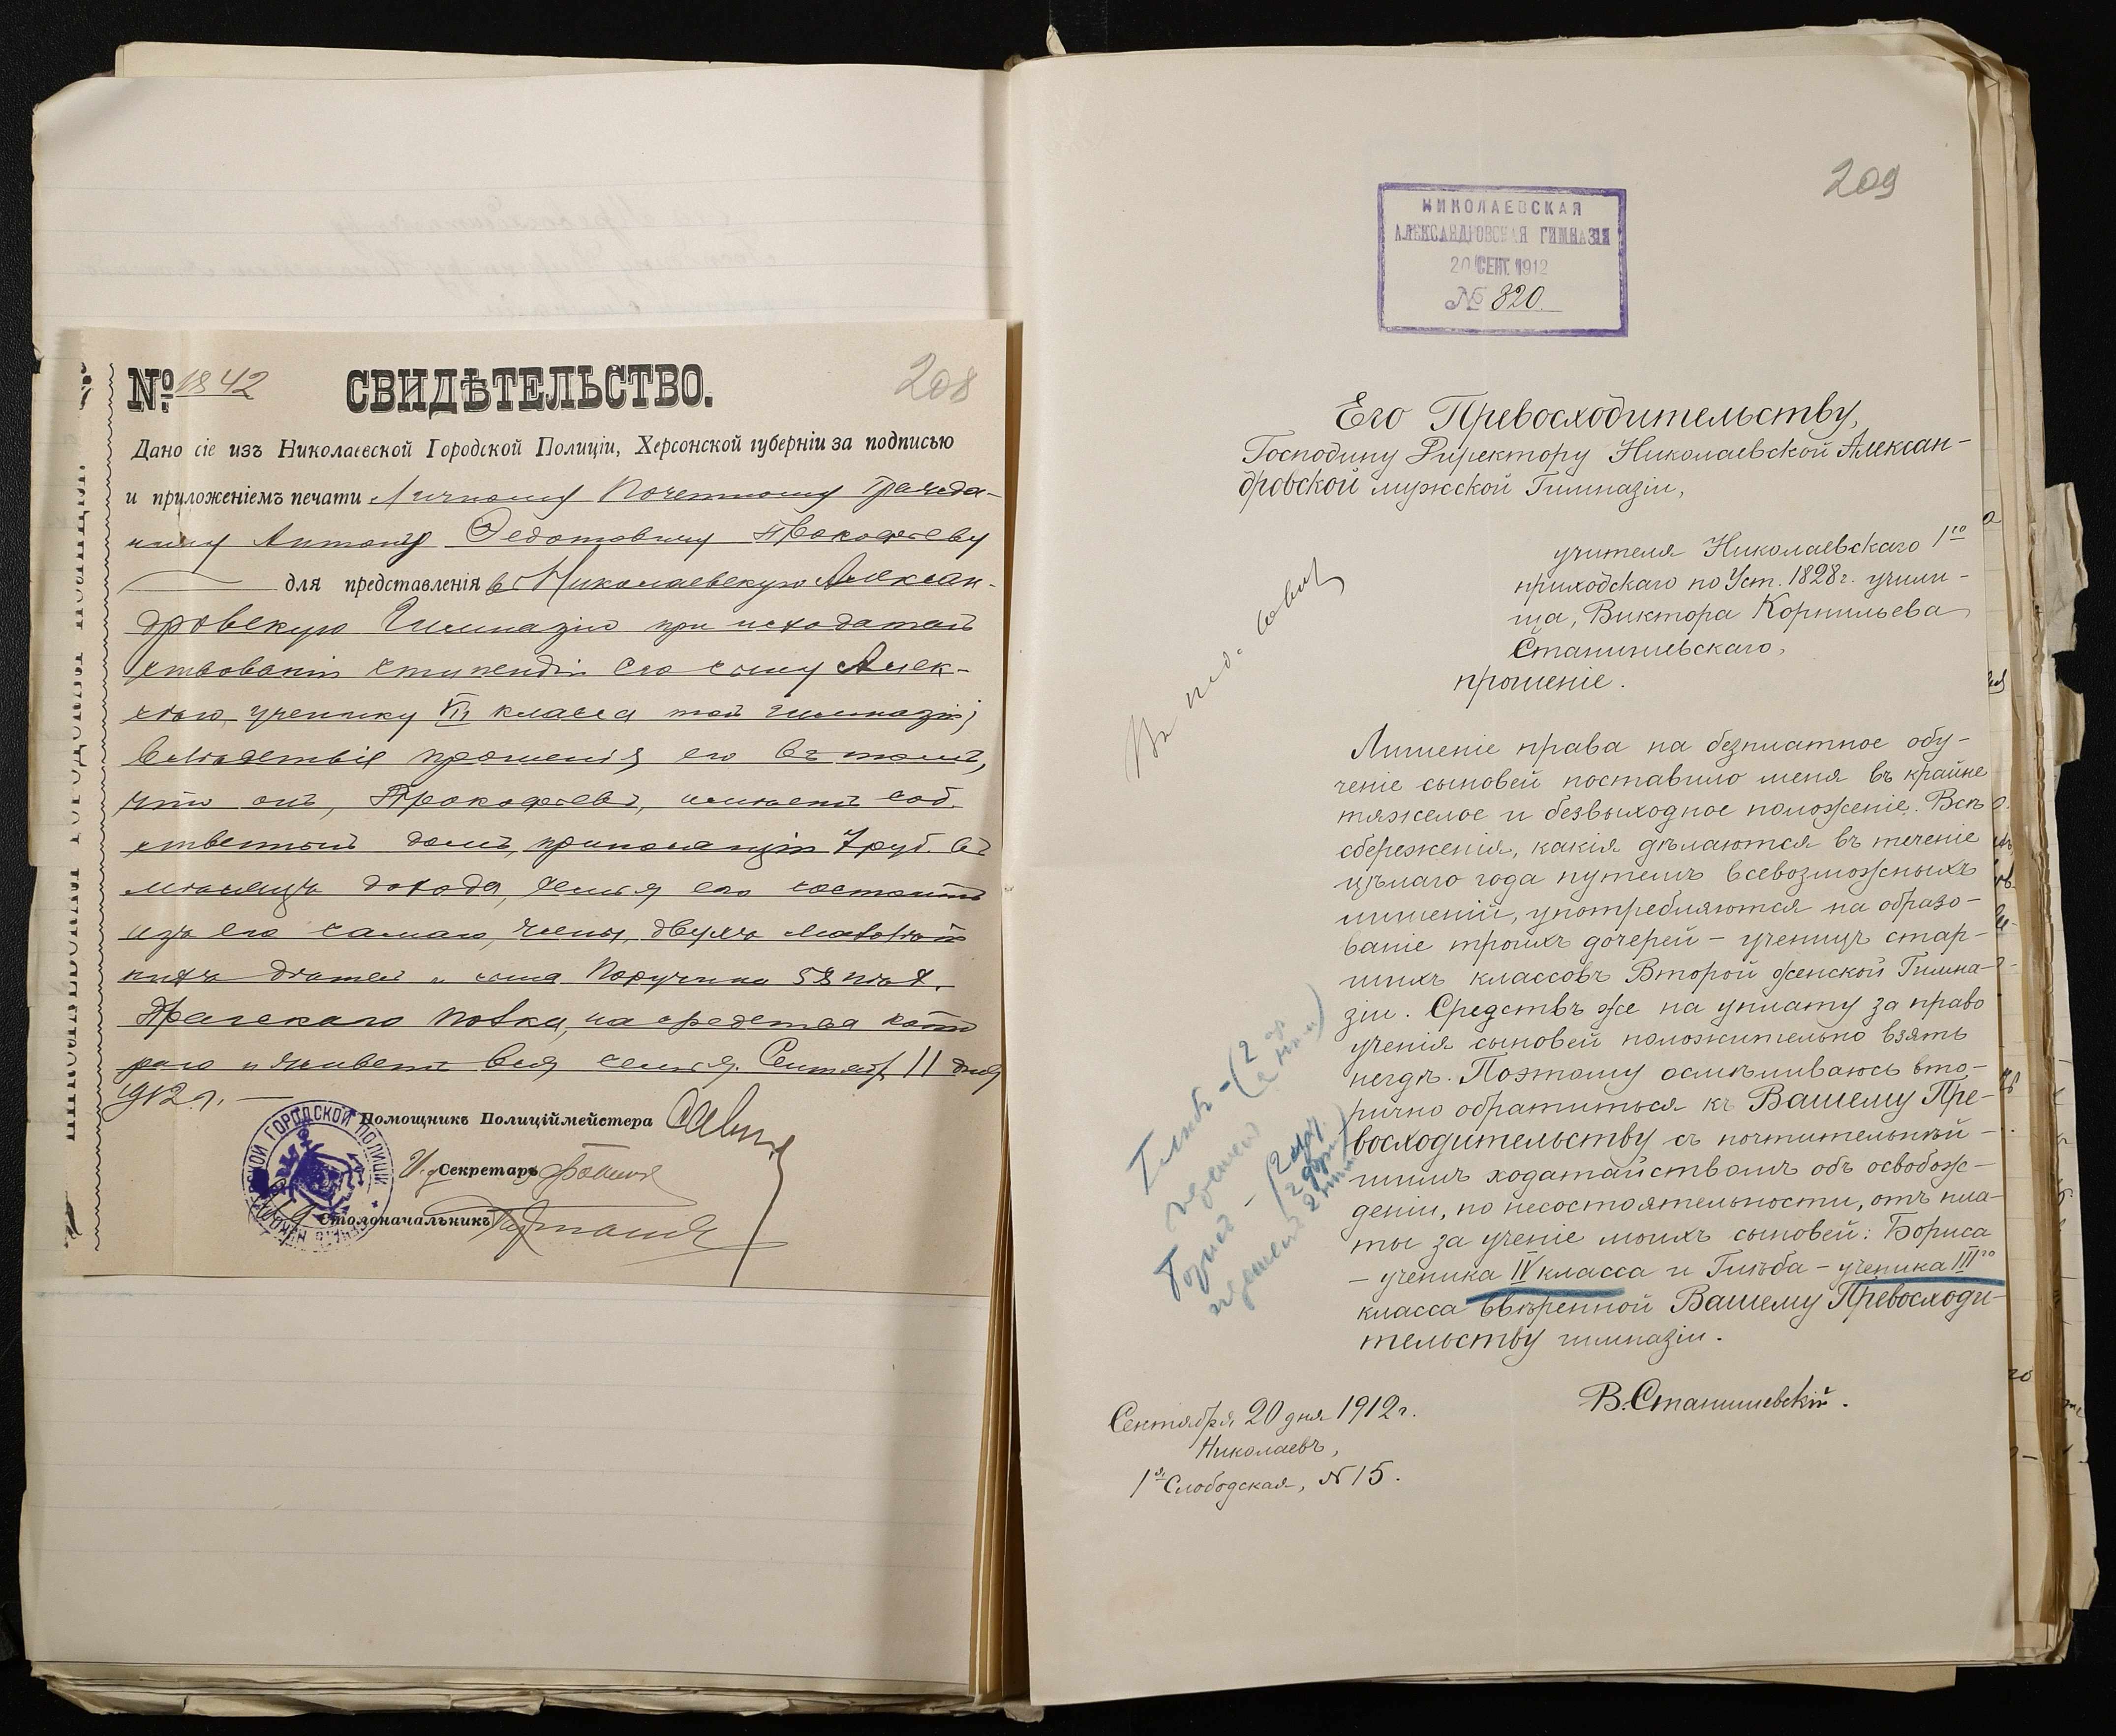 № 1842
СВИДѢТЕЛЬСТВО.
208
Дано сіе изъ Николаевской Городской Полиціи, Херсонской губерніи за подписью
и приложеніемъ печати Личному Почетному Гражда-
нину Антону Федотовичу Прокофьеву
для представленія въ Николаевскую Алексан-
дровскую Гимназію при исходатай
ствованіи стипендіи его сыну Алек-
сѣю, ученику VII класса той гимназіи,
вслѣдствіе прошенія его въ томъ,
что онъ, Прокофьевъ, имѣетъ соб
ственный домъ, приносящій 7 руб. въ
мѣсяцъ дохода, семья его состоитъ
изъ его самаго, жены, двухъ малолѣт
нихъ дѣтей и сына Поручика 58 пѣх.
Прагскаго полка, на средства кото
раго и живетъ вся семья. Сентября 11 дня
1912 г.
Помощникъ Полиціймейстера
И. д. Секретаря
Столоначальникъ
НИКОЛАЕВСКОЙ ГОРОДСКОЙ ПОЛИЦІИ
209
НИКОЛАЕВСКАЯ
АЛЕКСАНДРОВСКАЯ ГИМНАЗІЯ
20 СЕНТ. 1912
№ 820.
Его Превосходительству,
Господину Директору Николаевской Алексан-
дровской мужской Гимназіи,
учителя Николаевскаго 1го
приходскаго по Уст. 1828 г. учили-
ща, Виктора Корнильева
Станишевскаго,
прошеніе.
Лишеніе права на безплатное обу-
ченіе сыновей поставило меня въ крайне
тяжелое и безвыходное положеніе. Всѣ
сбереженія, какія дѣлаются въ теченіе
цѣлаго года путемъ всевозможныхъ
лишеній, употребляются на образо-
ваніе троихъ дочерей – ученицъ стар-
шихъ классовъ Второй женской Гимна-
зіи. Средствъ же на уплату за право
ученія сыновей положительно взять
негдѣ. Поэтому осмѣливаюсь вто-
рично обратиться къ Вашему Пре-
восходительству съ почтительнѣй-
шимъ ходатайствомъ объ освобож-
деніи, по несостоятельности, отъ пла-
ты за ученіе моихъ сыновей: Бориса
– ученика IV класса и Глѣба – ученика IIIго
класса ввѣренной Вашему Превосходи-
тельству гимназіи.
В. Станишевскій.
Сентября 20 дня 1912 г.
Николаевъ,
1я Слободская, № 15.